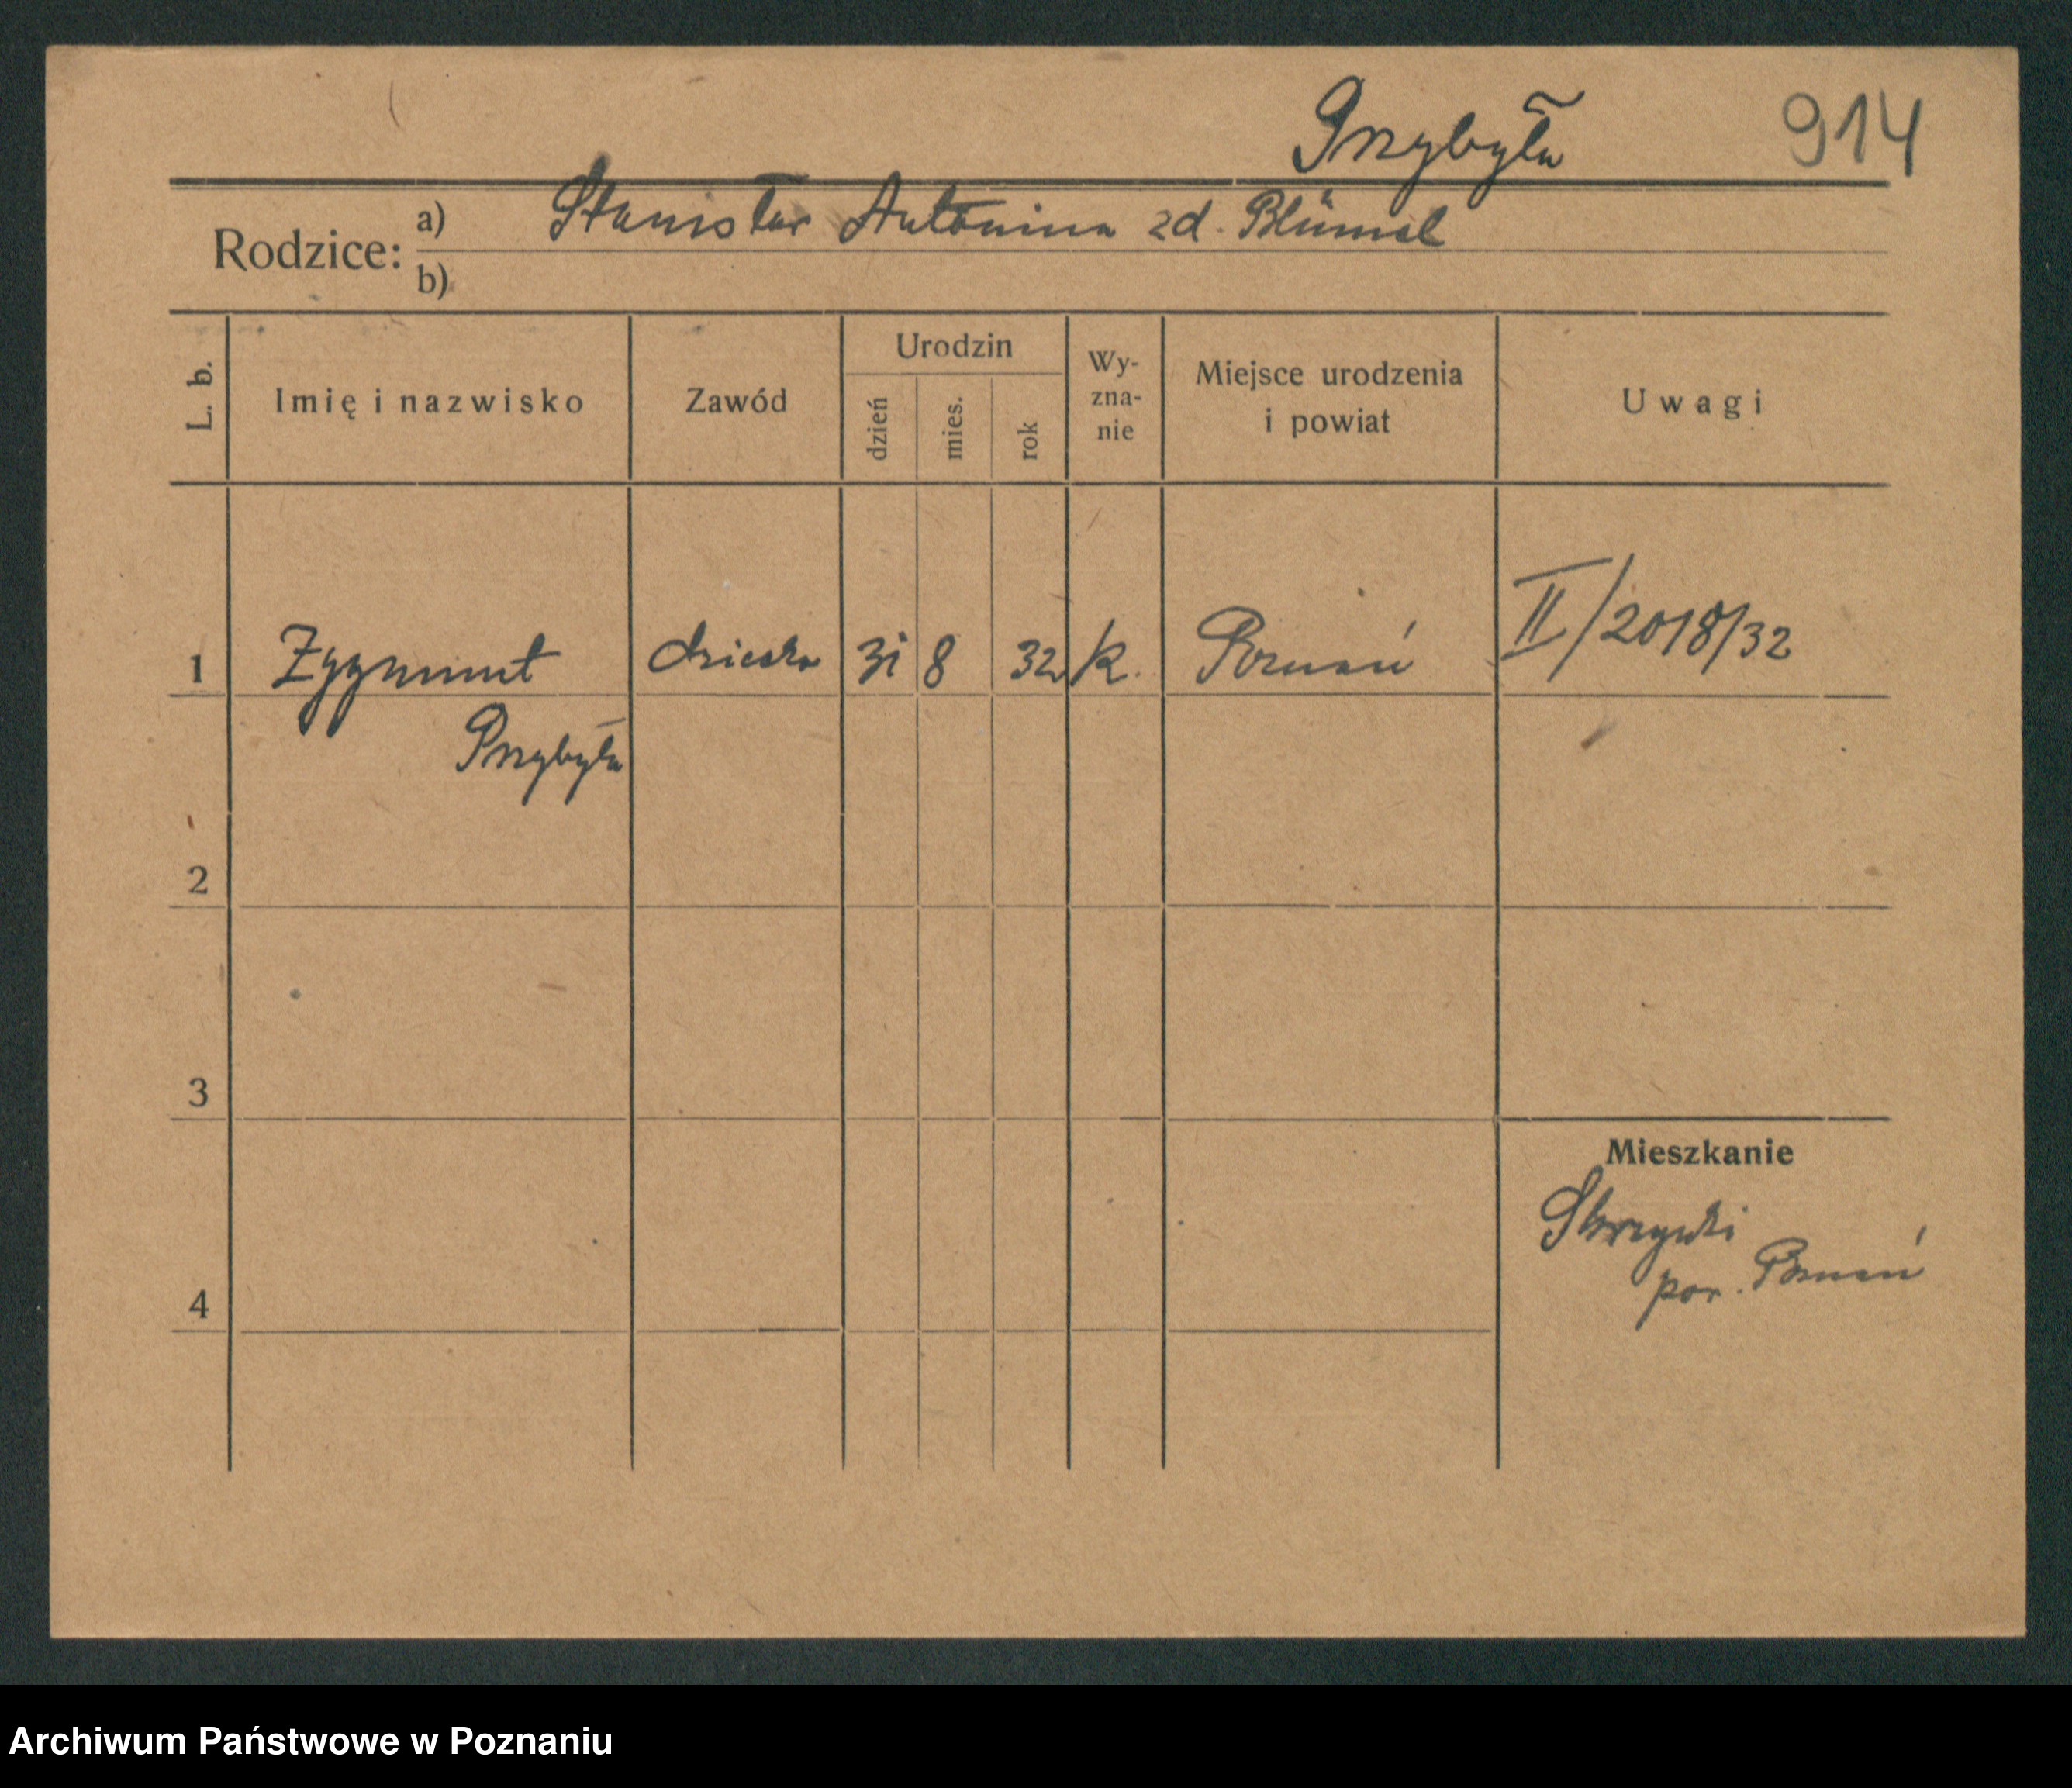 Przybyła 914
Rodzice: a) Stanisław Antonina zd. Blümel
b)
L. b. Imię i nazwisko Zawód Urodzin dzień mies. rok Wy-zna-nie Miejsce urodzenia i powiat Uwagi
1 Zygmunt dziecko 31 8 32 k. Poznań II/2018/32
Przybyła
2
3
Mieszkanie
Skrzynki
pow. Poznań
4
Archiwum Państwowe w Poznaniu